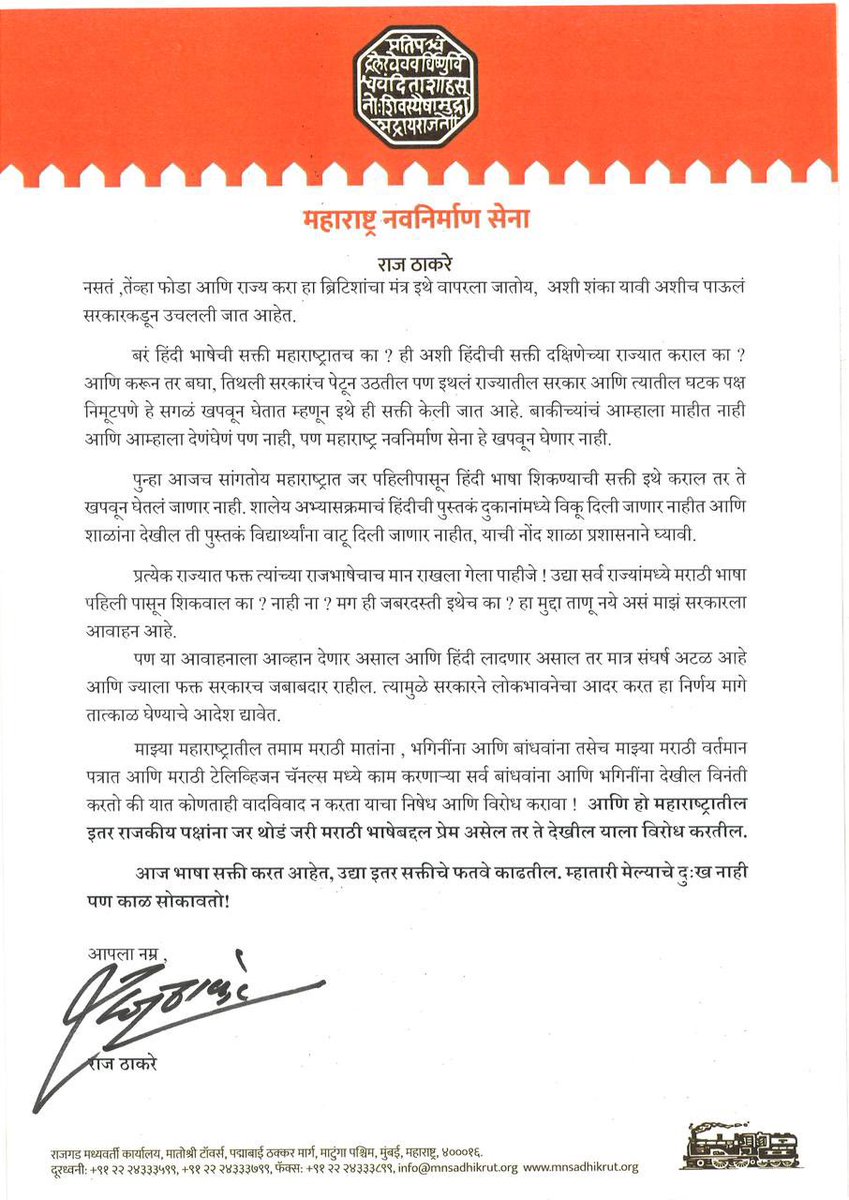 प्रतिपच्चं
द्रलेखेवव र्धिष्णुर्वि
श्ववंदिताशाहस
नोःशिवस्यैषामुद्रा
भद्रायराजते
महाराष्ट्र नवनिर्माण सेना
राज ठाकरे
नसतं ,तेंव्हा फोडा आणि राज्य करा हा ब्रिटिशांचा मंत्र इथे वापरला जातोय, अशी शंका यावी अशीच पाऊलं
सरकारकडून उचलली जात आहेत.
बरं हिंदी भाषेची सक्ती महाराष्ट्रातच का ? ही अशी हिंदीची सक्ती दक्षिणेच्या राज्यात कराल का ?
आणि करून तर बघा, तिथली सरकारंच पेटून उठतील पण इथलं राज्यातील सरकार आणि त्यातील घटक पक्ष
निमूटपणे हे सगळं खपवून घेतात म्हणून इथे ही सक्ती केली जात आहे. बाकीच्यांचं आम्हाला माहीत नाही
आणि आम्हाला देणंघेणं पण नाही, पण महाराष्ट्र नवनिर्माण सेना हे खपवून घेणार नाही.
पुन्हा आजच सांगतोय महाराष्ट्रात जर पहिलीपासून हिंदी भाषा शिकण्याची सक्ती इथे कराल तर ते
खपवून घेतलं जाणार नाही. शालेय अभ्यासक्रमाचं हिंदीची पुस्तकं दुकानांमध्ये विकू दिली जाणार नाहीत आणि
शाळांना देखील ती पुस्तकं विद्यार्थ्यांना वाटू दिली जाणार नाहीत, याची नोंद शाळा प्रशासनाने घ्यावी.
प्रत्येक राज्यात फक्त त्यांच्या राजभाषेचाच मान राखला गेला पाहीजे ! उद्या सर्व राज्यांमध्ये मराठी भाषा
पहिली पासून शिकवाल का ? नाही ना ? मग ही जबरदस्ती इथेच का ? हा मुद्दा ताणू नये असं माझं सरकारला
आवाहन आहे.
पण या आवाहनाला आव्हान देणार असाल आणि हिंदी लादणार असाल तर मात्र संघर्ष अटळ आहे
आणि ज्याला फक्त सरकारच जबाबदार राहील. त्यामुळे सरकारने लोकभावनेचा आदर करत हा निर्णय मागे
तात्काळ घेण्याचे आदेश द्यावेत.
माझ्या महाराष्ट्रातील तमाम मराठी मातांना , भगिनींना आणि बांधवांना तसेच माझ्या मराठी वर्तमान
पत्रात आणि मराठी टेलिव्हिजन चॅनल्स मध्ये काम करणाऱ्या सर्व बांधवांना आणि भगिनींना देखील विनंती
करतो की यात कोणताही वादविवाद न करता याचा निषेध आणि विरोध करावा ! आणि हो महाराष्ट्रातील
इतर राजकीय पक्षांना जर थोडं जरी मराठी भाषेबद्दल प्रेम असेल तर ते देखील याला विरोध करतील.
आज भाषा सक्ती करत आहेत, उद्या इतर सक्तीचे फतवे काढतील. म्हातारी मेल्याचे दुःख नाही
पण काळ सोकावतो!
आपला नम्र ,
राज ठाकरे
राज ठाकरे
राजगड मध्यवर्ती कार्यालय, मातोश्री टॉवर्स, पद्माबाई ठक्कर मार्ग, माटुंगा पश्चिम, मुंबई, महाराष्ट्र, ४०००१६.
दूरध्वनी: +९१ २२ २४३३३५९९, +९१ २२ २४३३३७९९, फॅक्स: +९१ २२ २४३३३८९९, info@mnsadhikrut.org www.mnsadhikrut.org